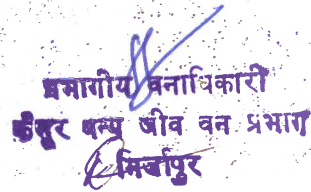 प्रभागीय वनाधिकारी
कैमूर वन्य जीव वन प्रभाग
मिर्जापुर